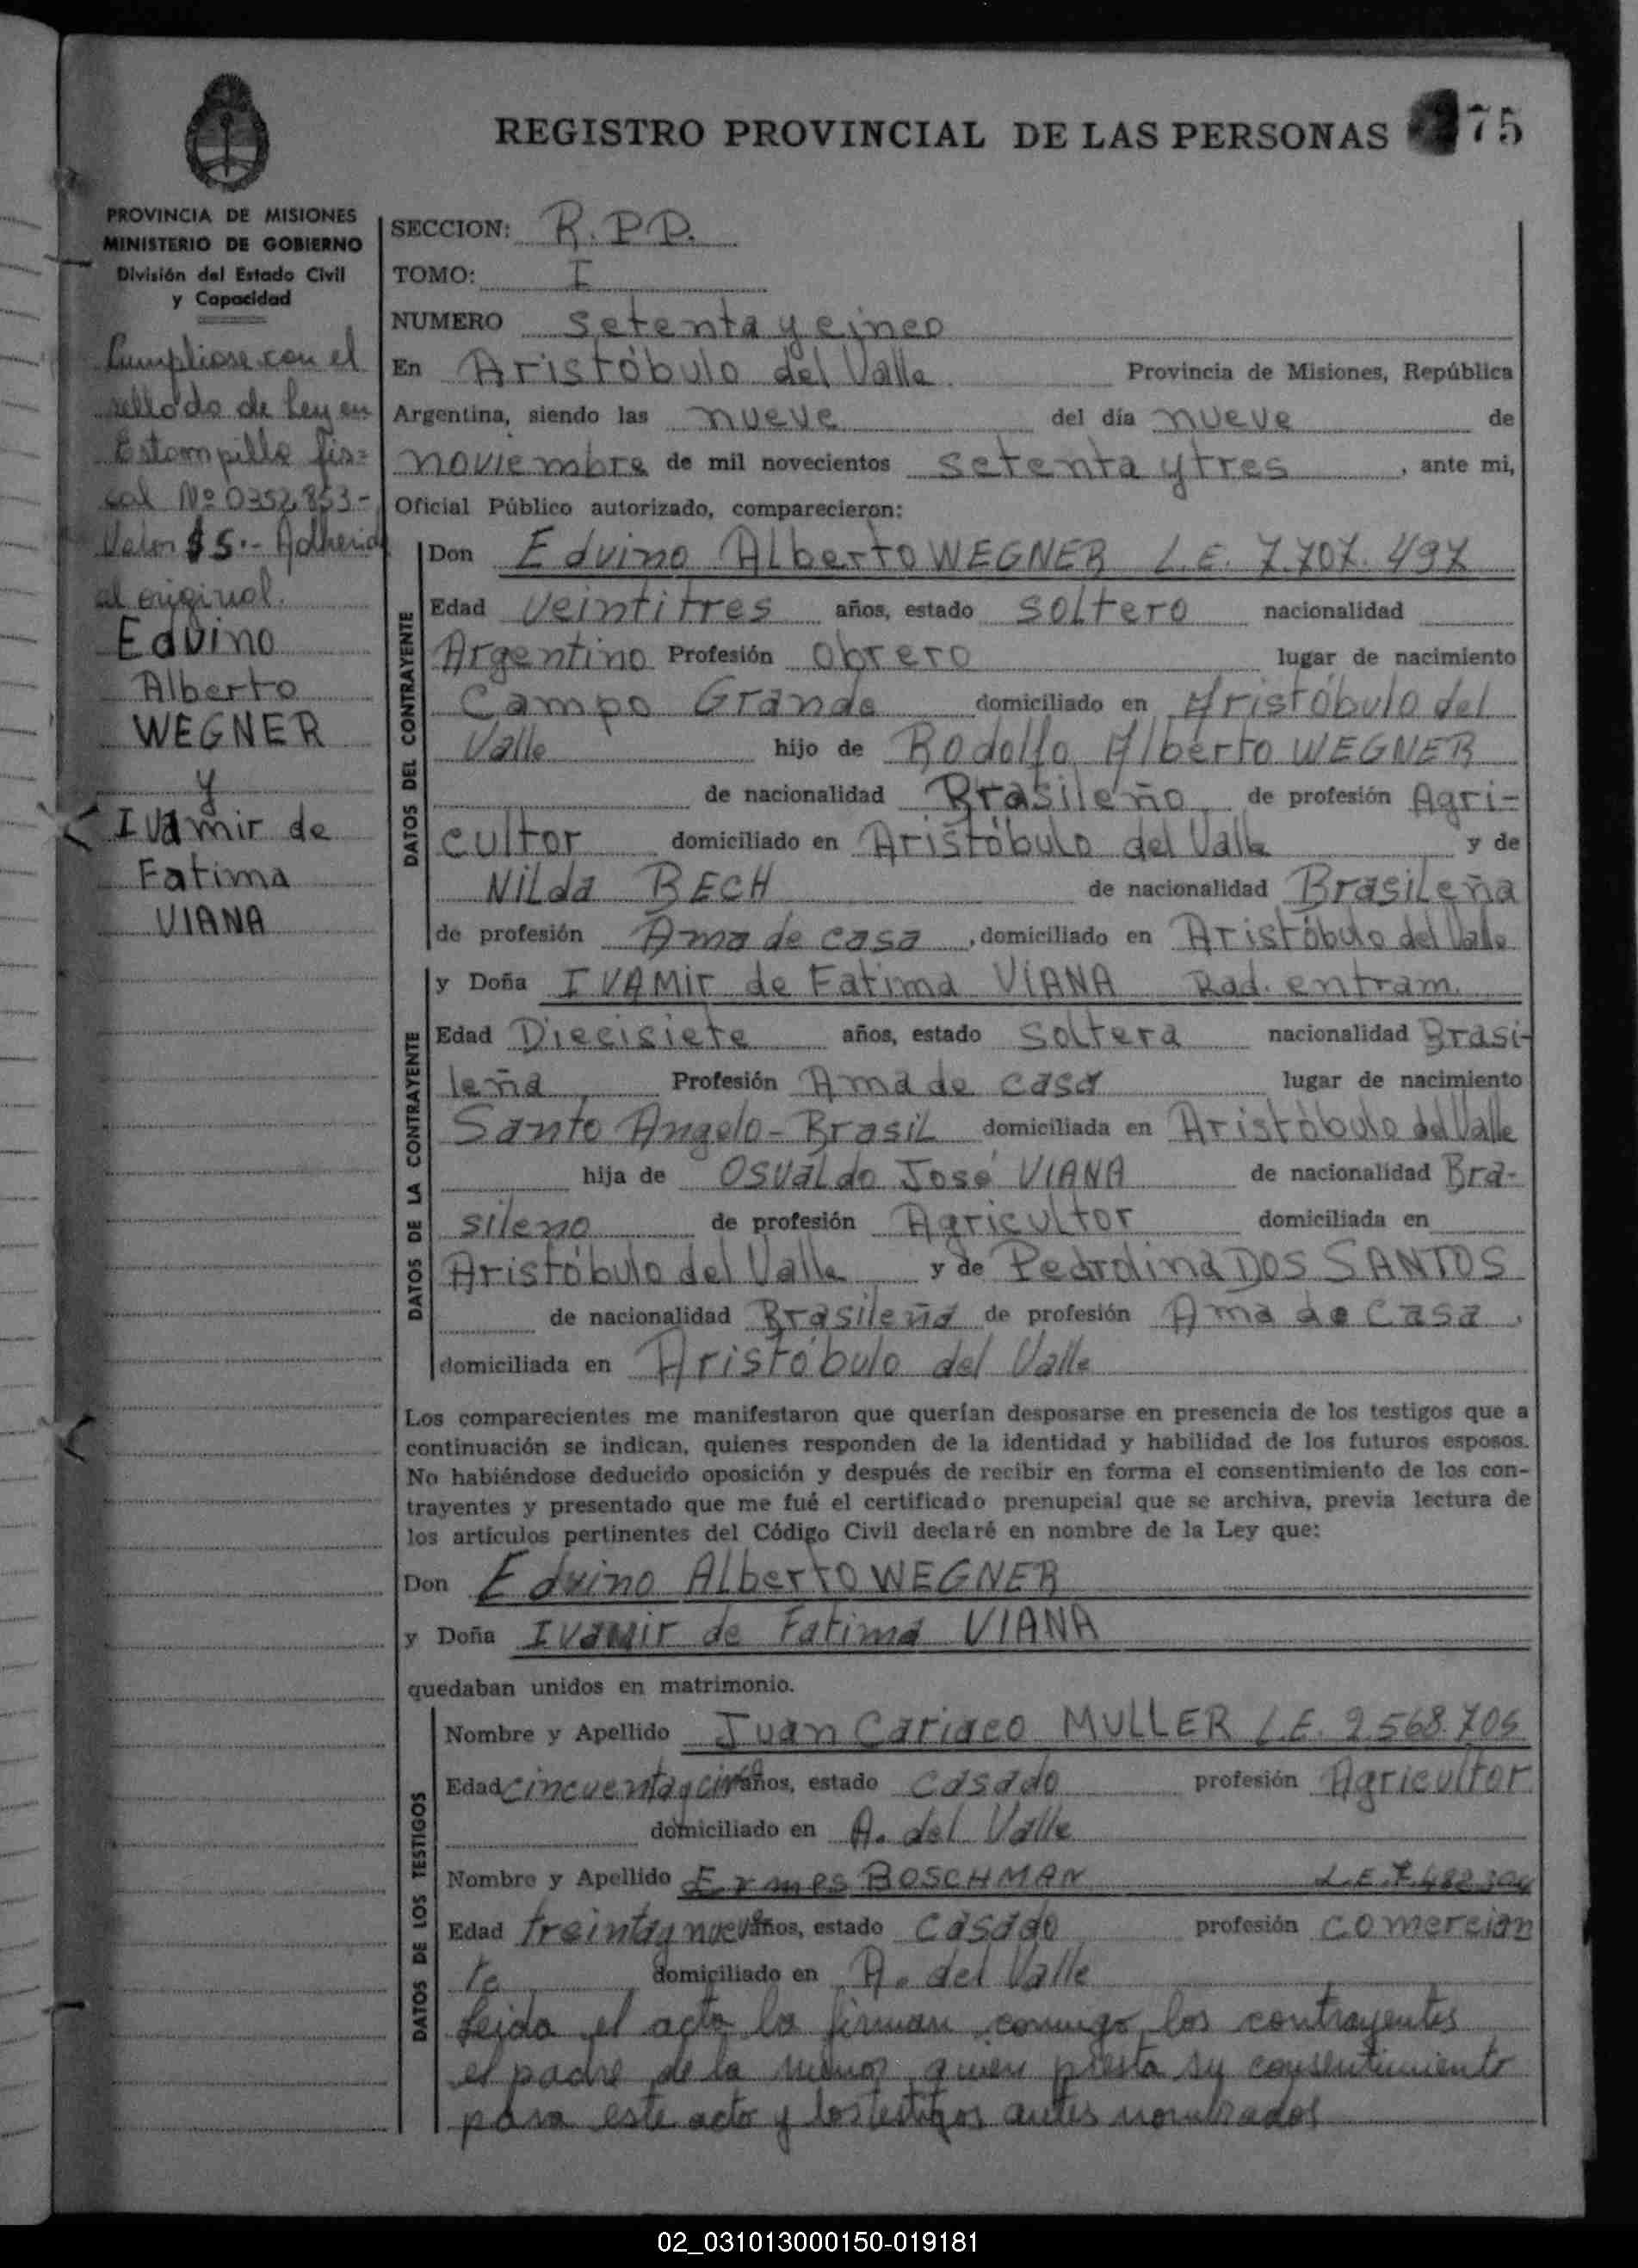 REGISTRO PROVINCIAL DE LAS PERSONAS 75
PROVINCIA DE MISIONES
MINISTERIO DE GOBIERNO
División del Estado Civil
y Capacidad
Cumpliose con el
sellado de ley en
Estampilla fis=
cal Nº 0352,853-
Valor $5.- Adherid
al original.
Edvino
Alberto
WEGNER
y
Ivamir de
Fatima
VIANA
SECCION: R.P.P.
TOMO: I
NUMERO setenta y cinco
En Aristóbulo del Valle Provincia de Misiones, República
Argentina, siendo las nueve del día nueve de
noviembre de mil novecientos setenta y tres, ante mi,
Oficial Público autorizado, comparecieron:
DATOS DEL CONTRAYENTE
Don Edvino Alberto WEGNER L.E. 7.707.497
Edad veintitres años, estado soltero nacionalidad
Argentino Profesión obrero lugar de nacimiento
Campo Grande domiciliado en Aristóbulo del
Valle hijo de Rodolfo Alberto WEGNER
de nacionalidad Brasileño de profesión Agri-
cultor domiciliado en Aristóbulo del Valle y de
Nilda BECH de nacionalidad Brasileña
de profesión Ama de casa, domiciliado en Aristóbulo del Valle
DATOS DE LA CONTRAYENTE
y Doña IVAMir de Fatima VIANA Rad. entram.
Edad Diecisiete años, estado Soltera nacionalidad Brasi-
leña Profesión Ama de casa lugar de nacimiento
Santo Angelo - Brasil domiciliada en Aristóbulo del Valle
hija de Osvaldo José VIANA de nacionalidad Bra-
sileno de profesión Agricultor domiciliada en
Aristóbulo del Valle y de Pedrolina DOS SANTOS
de nacionalidad Brasileña de profesión Ama de Casa,
domiciliada en Aristóbulo del Valle
Los comparecientes me manifestaron que querían desposarse en presencia de los testigos que a
continuación se indican, quienes responden de la identidad y habilidad de los futuros esposos.
No habiéndose deducido oposición y después de recibir en forma el consentimiento de los con-
trayentes y presentado que me fué el certificado prenupcial que se archiva, previa lectura de
los artículos pertinentes del Código Civil declaré en nombre de la Ley que:
Don Edvino Alberto WEGNER
y Doña Ivamir de Fatima VIANA
quedaban unidos en matrimonio.
DATOS DE LOS TESTIGOS
Nombre y Apellido Juan Cariaco MULLER L.E. 2.568.705
Edad cincuentaycinco años, estado casado profesión Agricultor
domiciliado en A. del Valle
Nombre y Apellido Ermes BOSCHMAN L.E. 7.482.304
Edad treintaynueve años, estado casado profesión comercian
te domiciliado en A. del Valle
Leida el acta la firman conmigo los contrayentes
el padre de la menor quien presta su consentimiento
para este acto y los testigos antes nombrados
02_031013000150-019181